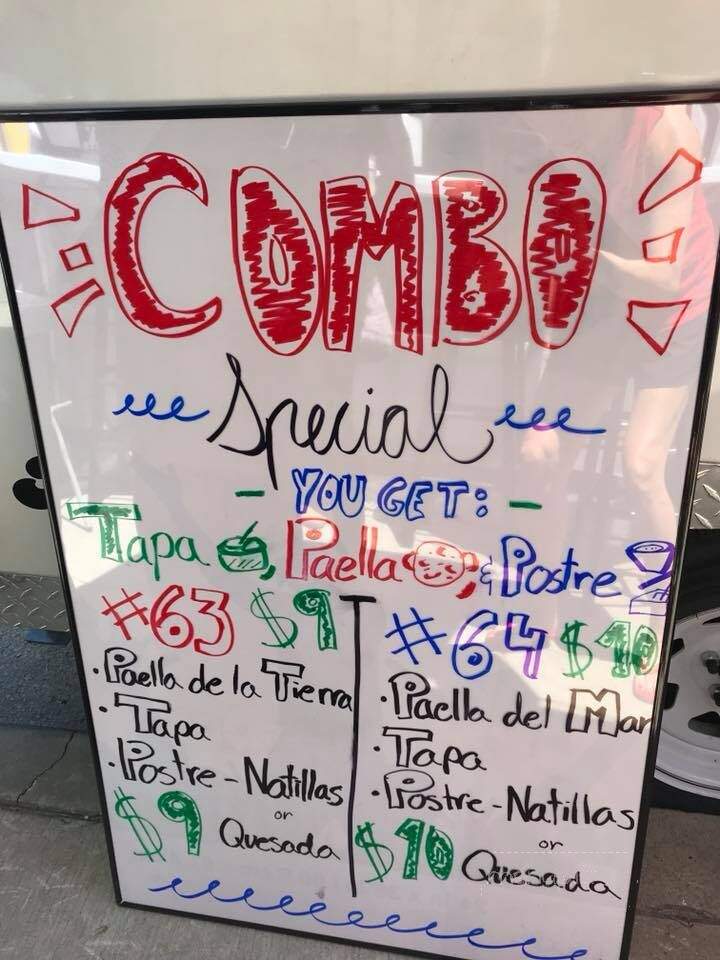 COMBO
Special
- YOU GET: -
Tapa, Paella, & Postre
#63 $9
• Paella de la Tierra
• Tapa
• Postre - Natillas
or
$9 Quesada
#64 $10
• Paella del Mar
• Tapa
• Postre - Natillas
or
$10 Quesada